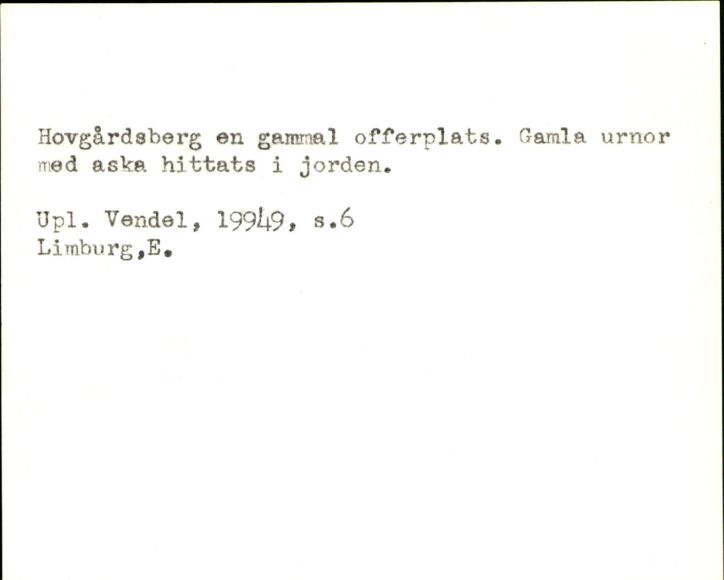 Hovgårdsberg en gammal offerplats. Gamla urnor
med aska hittats i jorden.
Upl. Vendel, 19949, s.6
Limburg,E.